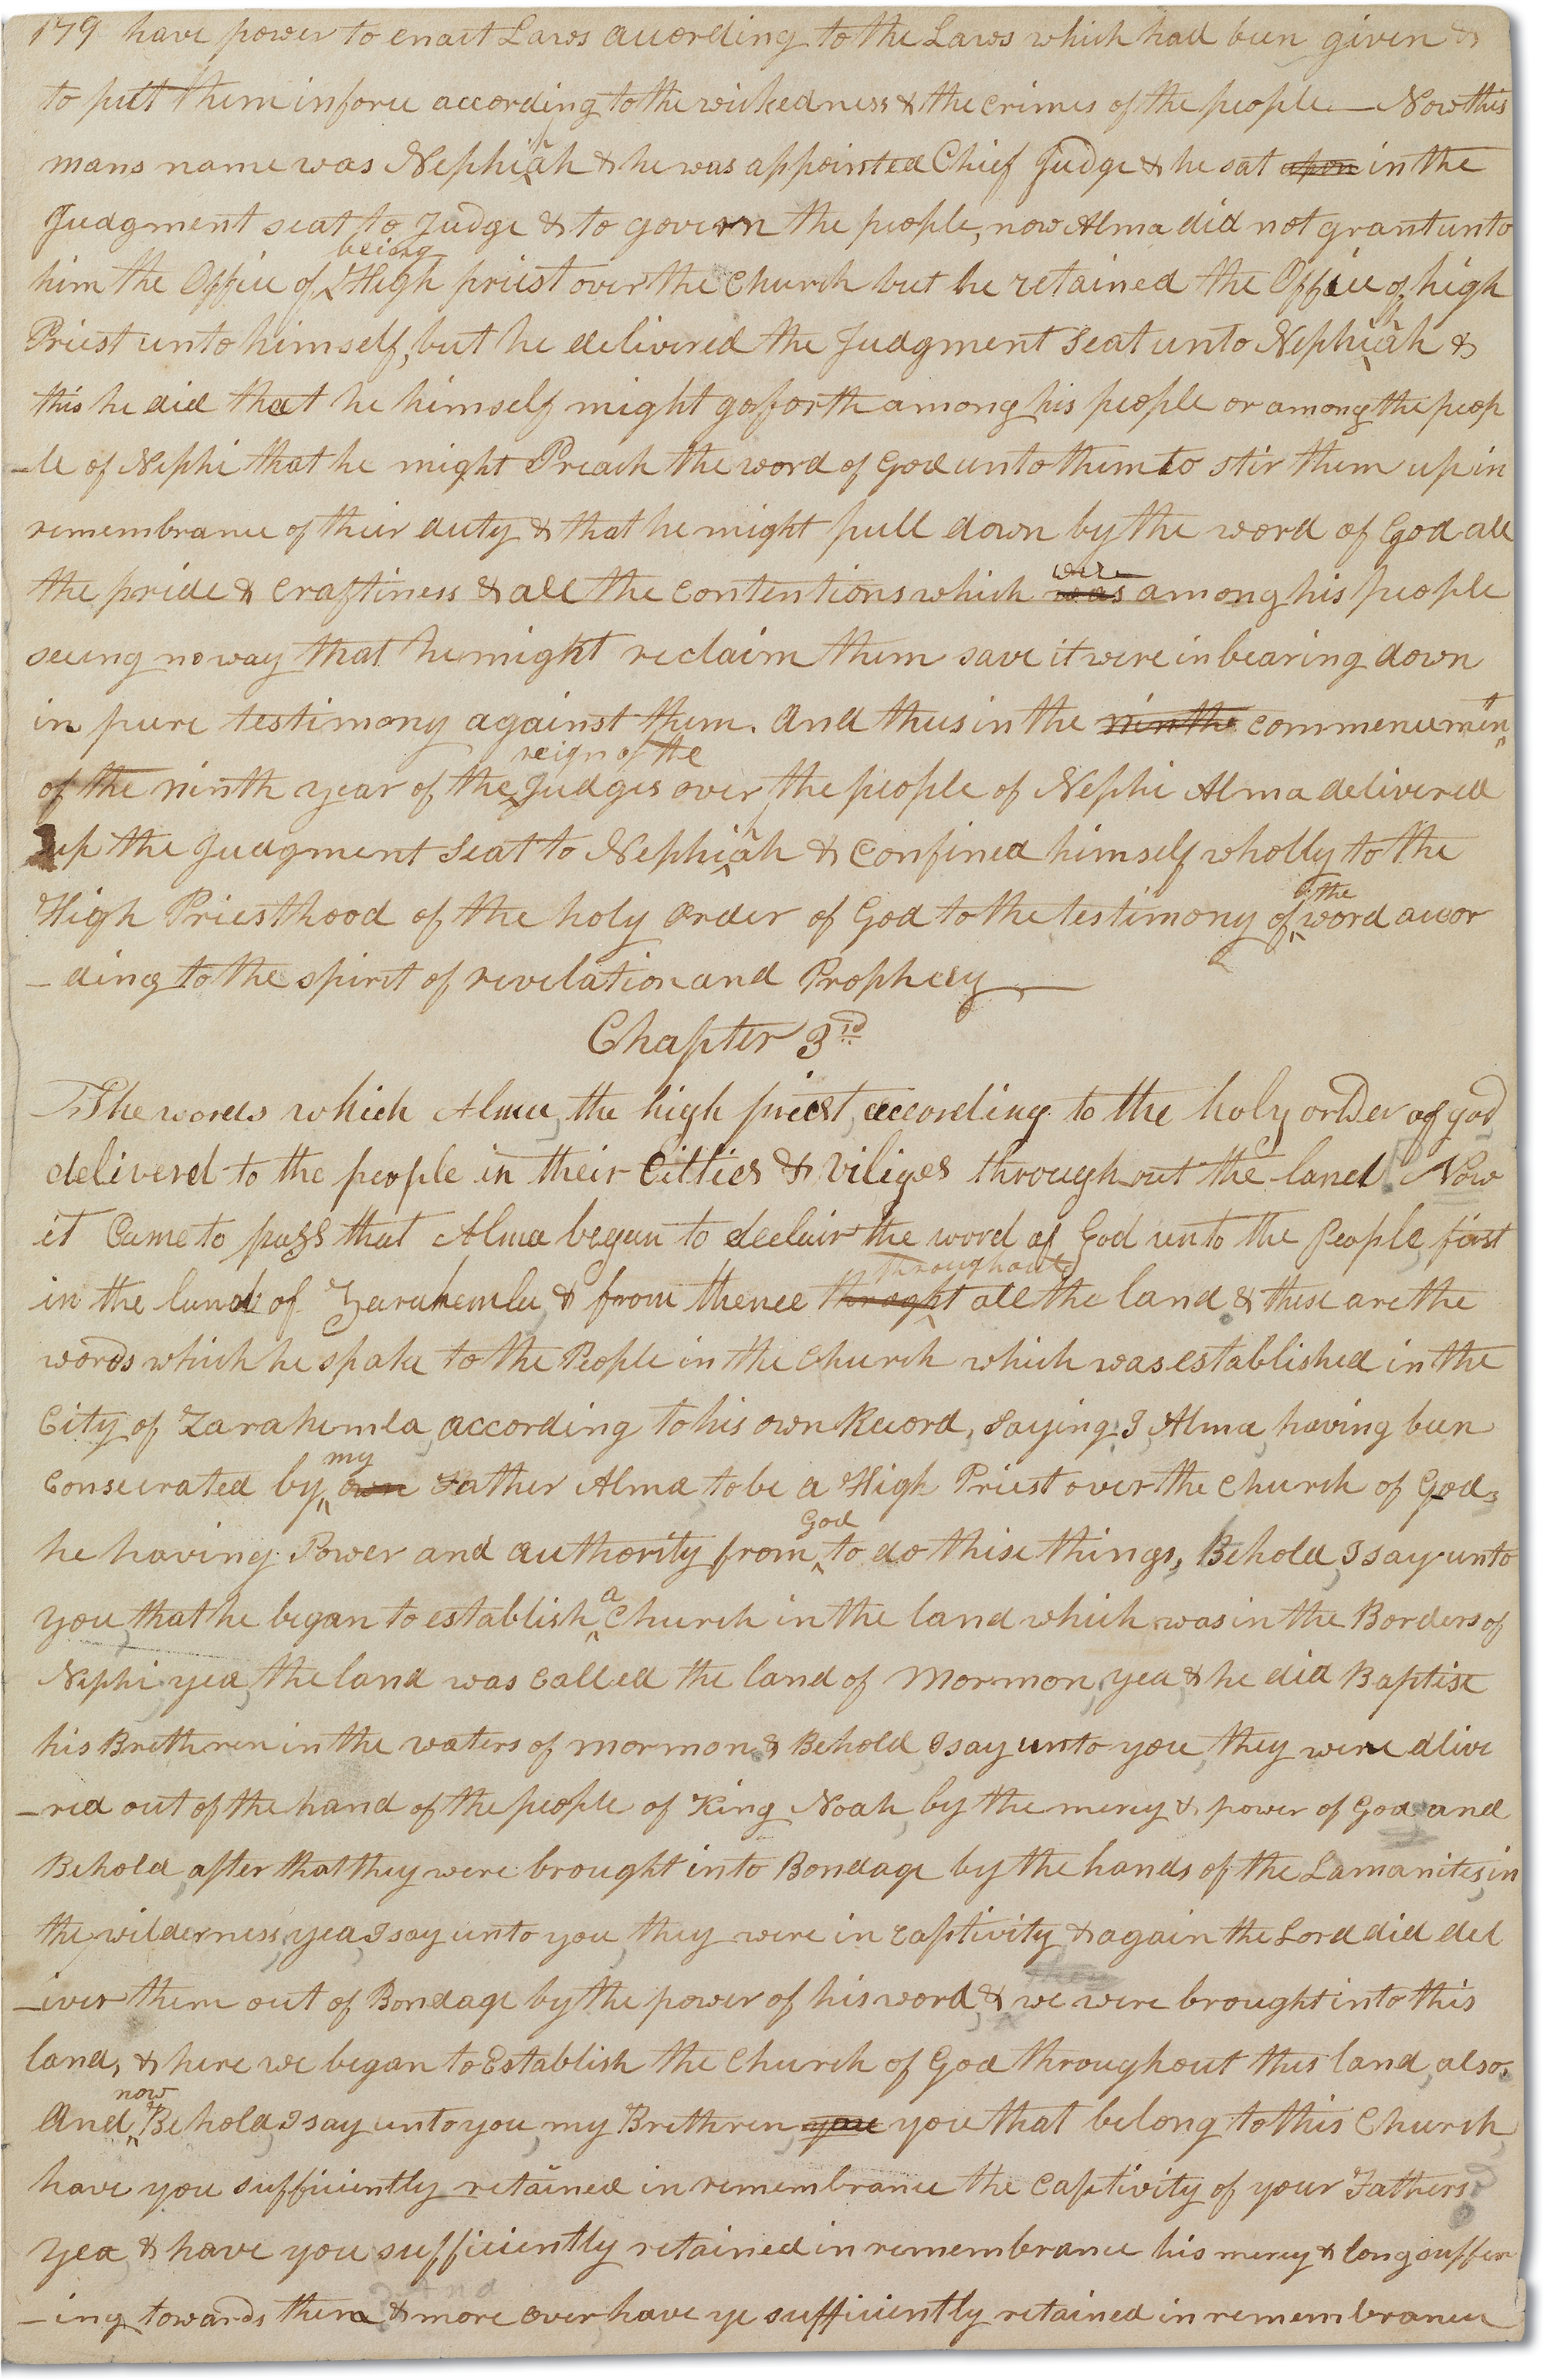 179 have power to enact Laws according to the Laws which had been given &
to put them in force according to the wickedness & the crimes of the people — Now this
mans name was Nephihah & he was appointed Chief Judge & he sat upon in the
Judgment seat to Judge & to govern the people, now Alma did not grant unto
being
him the Office of High priest over the Church but he retained the Office of high
Priest unto himself, but he delivered the Judgment Seat unto Nephihah &
this he did that he himself might go forth among his people or among the peop
-le of Nephi that he might Preach the word of God unto them to stir them up in
remembrance of their duty & that he might pull down by the word of God all
the pride & craftiness & all the contentions which was among his people
were
seeing no way that he might reclaim them save it were in bearing down
in pure testimony against them. And thus in the ninthe commencment
reign of the
of the ninth year of the Judges over the people of Nephi Alma delivered
up the Judgment Seat to Nephihah & confined himself wholly to the
High Priesthood of the holy order of God to the testimony of word accor
the
-ding to the spirit of revelation and Prophecy —
Chapter 3rd
The words which Alma, the high priest, according to the holy order of god,
deliverd to the people in their Citties & Viliges throughout the land. Now
it Came to pass that Alma began to declair the word of God unto the People, first
throughout
in the land of Zarahemla, & from thence throght all the land & these are the
words which he spake to the People in the Church which was established in the
City of Zarahemla, according to his own Record, saying: I, Alma, having been
my
Consecrated by own Father Alma to be a High Priest over the Church of God,
God
he having Power and authority from to do these things, Behold, I say unto
a
you, that he began to establish Church in the land which was in the Borders of
Nephi yea, the land was called the land of Mormon, yea & he did Baptise
his Brethren in the waters of mormon & Behold, I say unto you, they were dlive
-red out of the hand of the people of King Noah, by the mercy & power of God and
Behold, after that they were brought into Bondage by the hands of the Lamanites, in
the wilderness, yea, I say unto you, they were in captivity & again the Lord did del
-iver them out of Bondage by the power of his word, & we were brought into this
land, & here we began to Establish the Church of God throughout this land, also,
now
And Behold, I say unto you, my Brethren, you you that belong to this Church,
have you sufficiently retained in remembrance the captivity of your Fathers?
yea, & have you sufficiently retained in remembrance his mercy & long suffer
And
-ing towards them & more over have ye sufficiently retained in remembrance